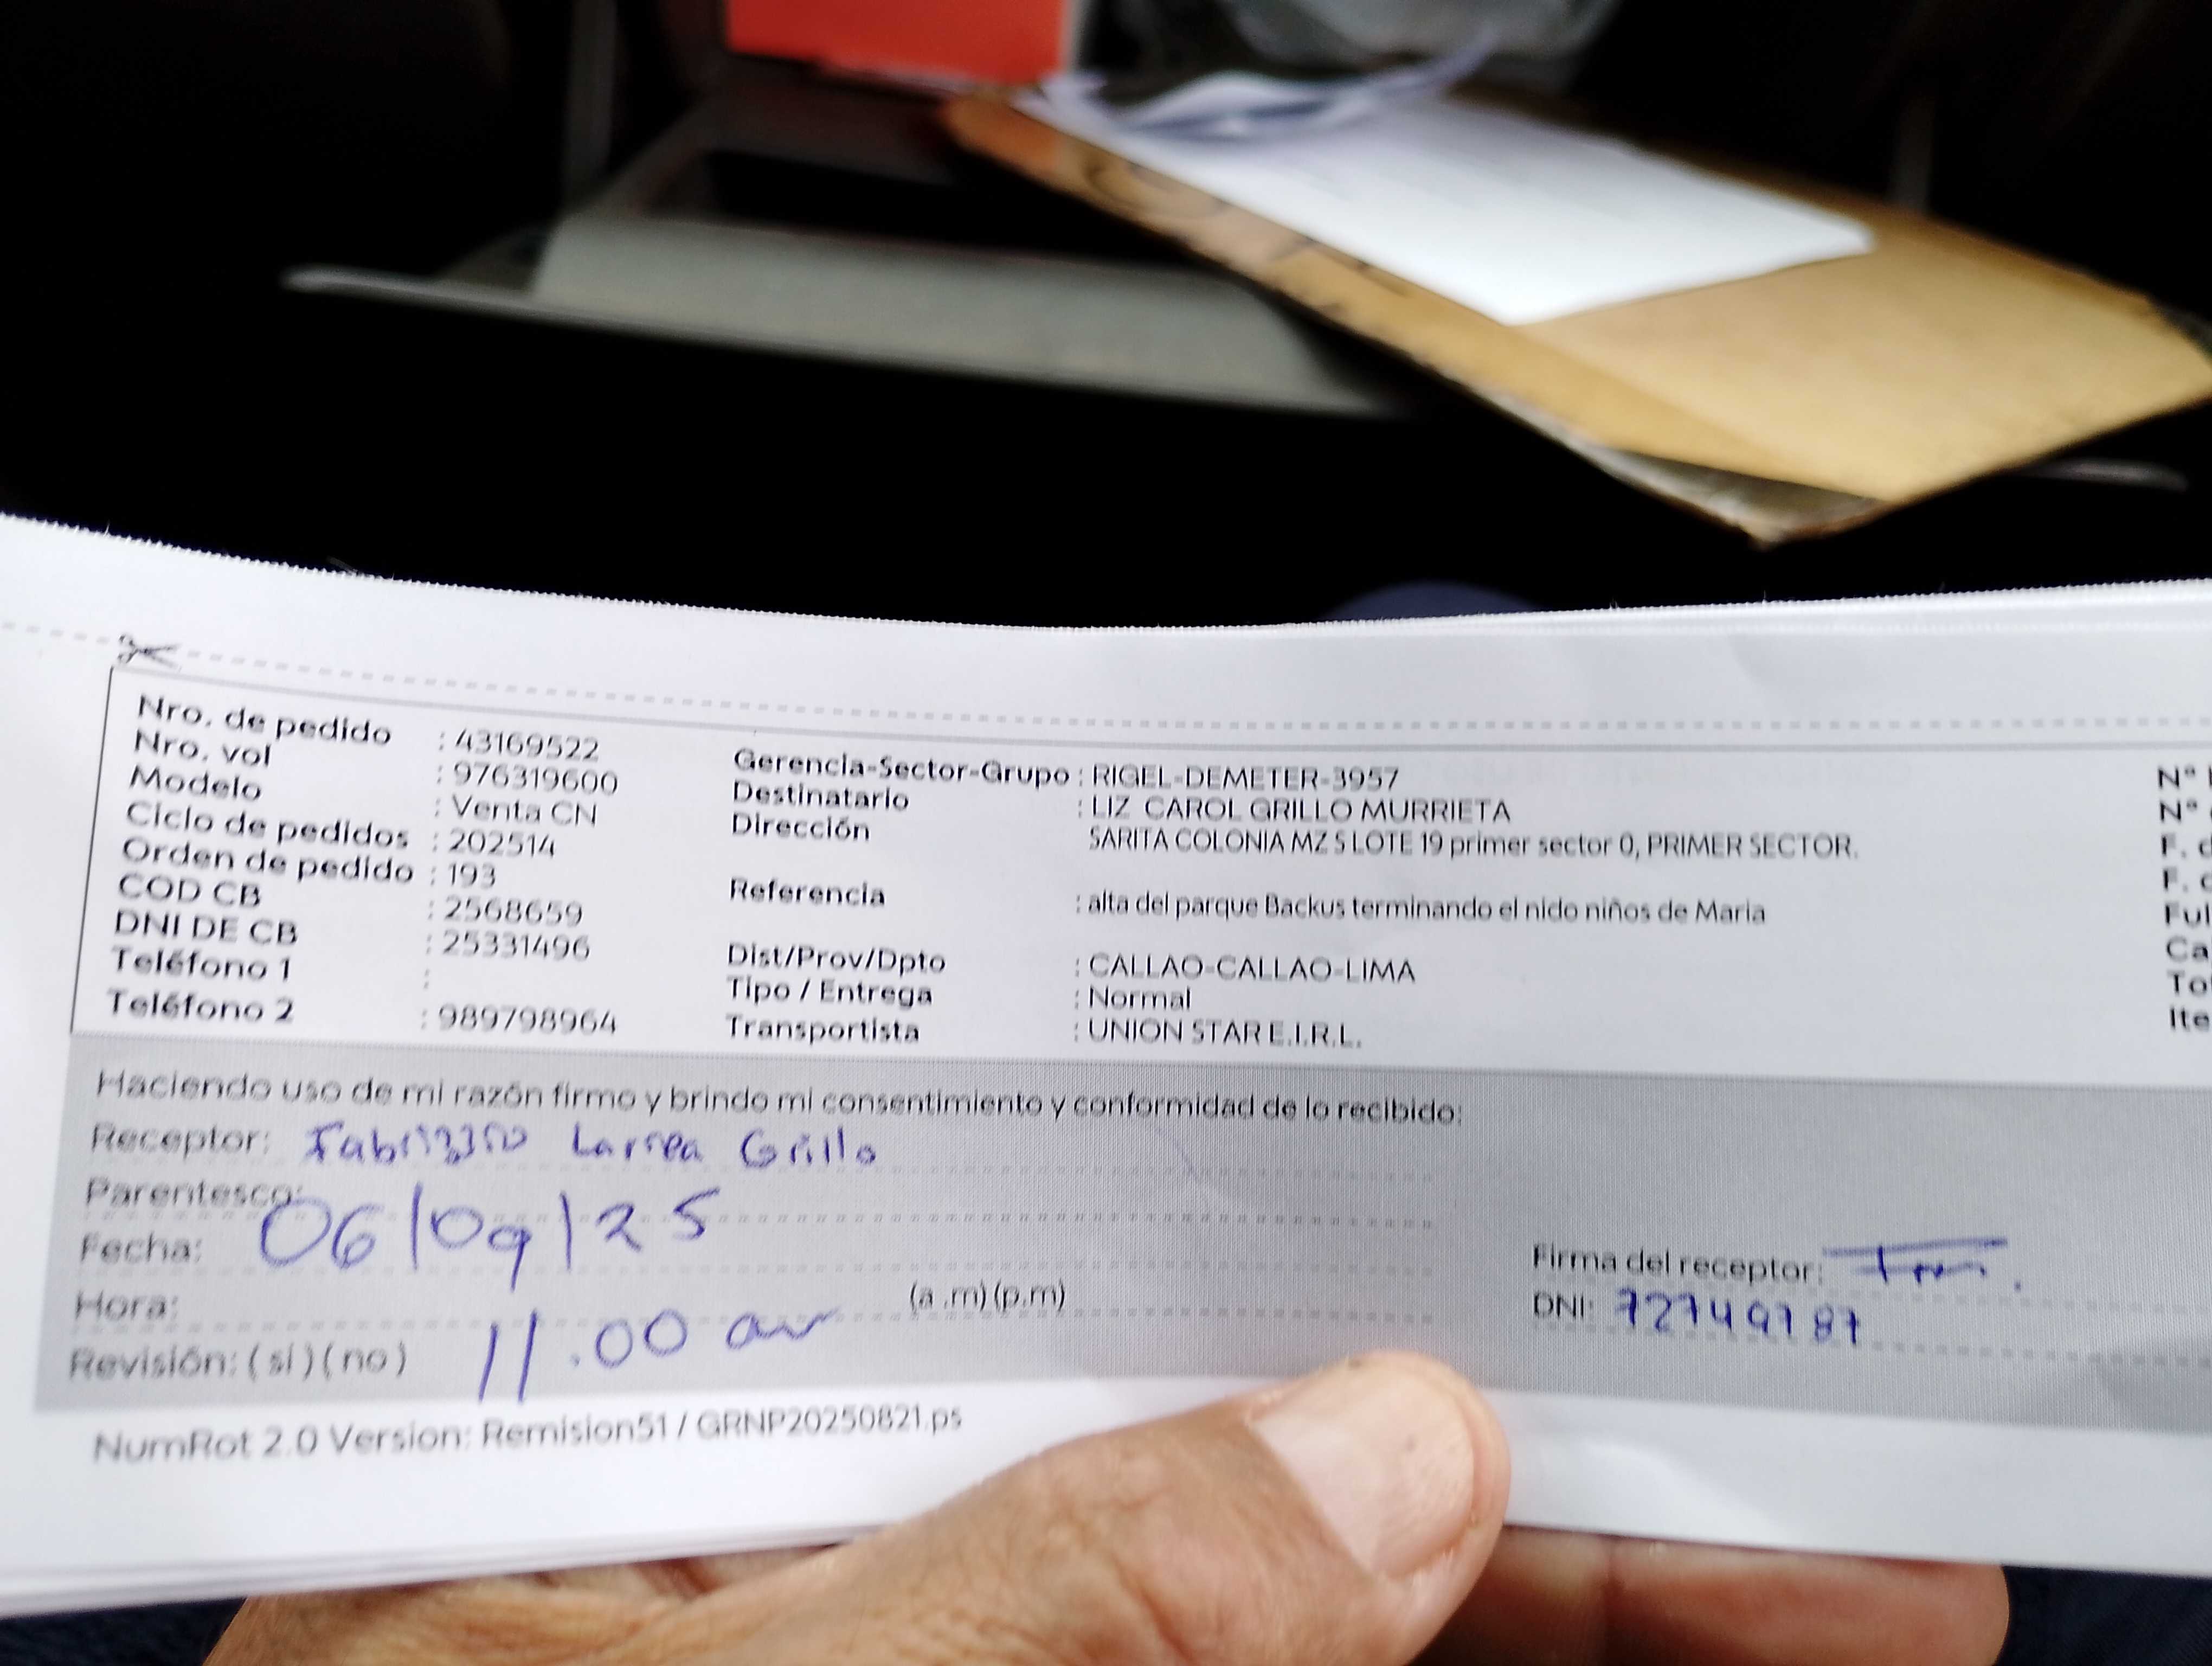 Nro. de pedido : 43169522
Nro. vol : 976319600
Modelo : Venta CN
Ciclo de pedidos : 202514
Orden de pedido : 193
COD CB : 2568659
DNI DE CB : 25331496
Teléfono 1 :
Teléfono 2 : 989798964
Gerencia-Sector-Grupo : RIGEL-DEMETER-3957
Destinatario : LIZ CAROL GRILLO MURRIETA
Dirección SARITA COLONIA MZ S LOTE 19 primer sector 0, PRIMER SECTOR.
Referencia : alta del parque Backus terminando el nido niños de Maria
Dist/Prov/Dpto : CALLAO-CALLAO-LIMA
Tipo / Entrega : Normal
Transportista : UNION STAR E.I.R.L.
N°
N°
F.
F.
Haciendo uso de mi razón firmo y brindo mi consentimiento y conformidad de lo recibido:
Receptor: Fabrizzio Larrea Grillo
Parentesco:
Fecha: 06/09/25
Hora: 11.00 am (a .m) (p.m)
Revisión: ( si ) ( no )
Firma del receptor:
DNI: 72749787
NumRot 2.0 Version: Remision51 / GRNP20250821.ps